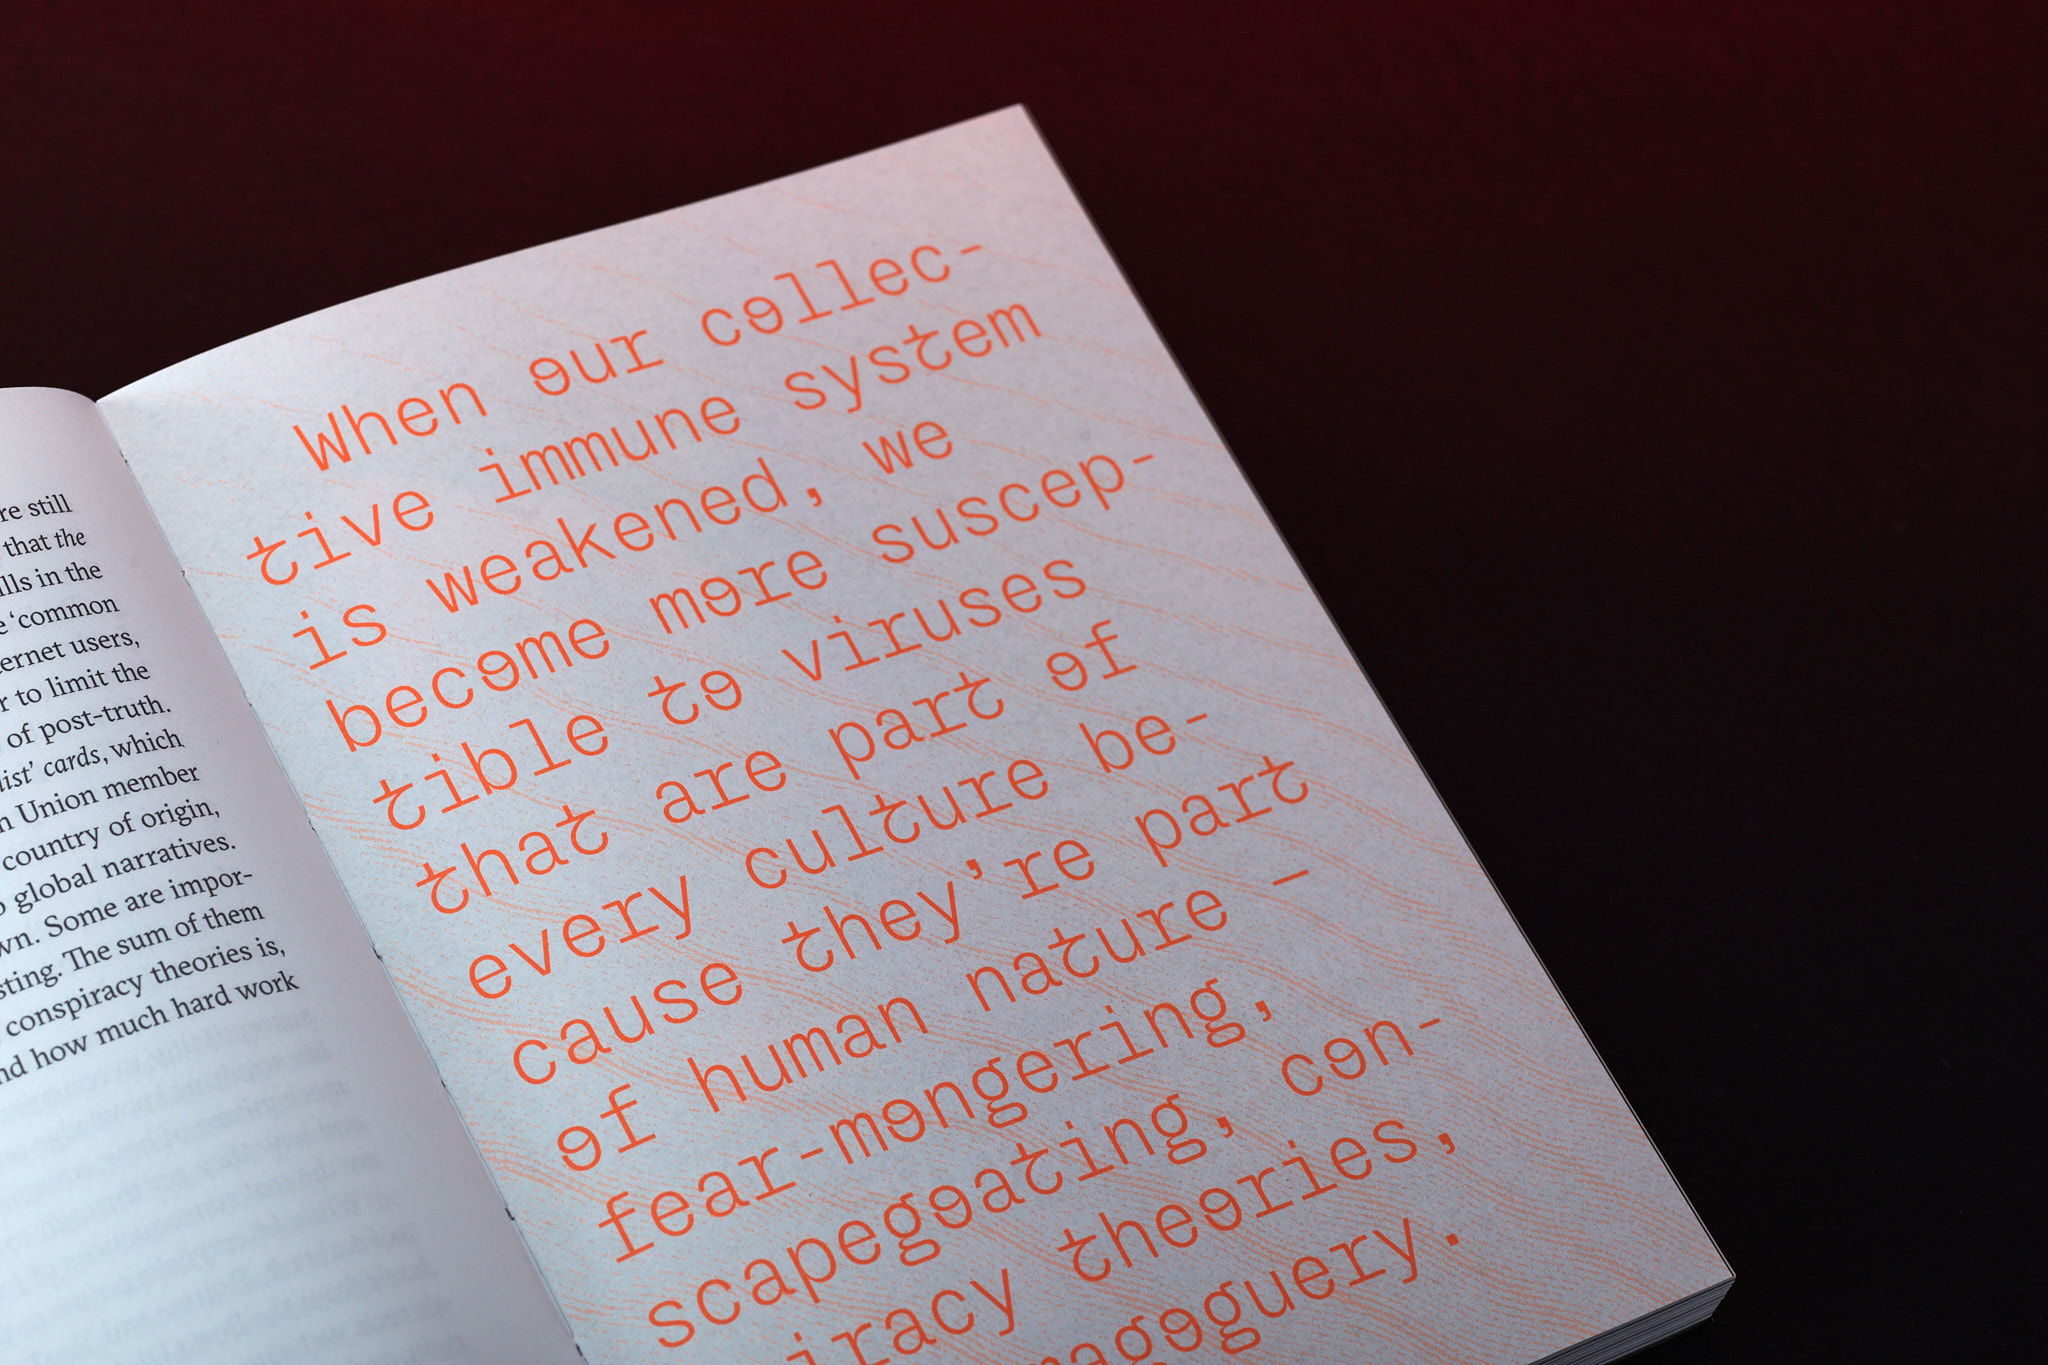 still
that the
in the
‘common
users,
to limit the
of post-truth.
cards, which
Union member
country of origin,
global narratives.
Some are impor-
The sum of them
conspiracy theories is,
how much hard work
When our collec-
tive immune system
is weakened, we
become more suscep-
tible to viruses
that are part of
every culture be-
cause they’re part
of human nature –
fear-mongering,
scapegoating, con-
theories,